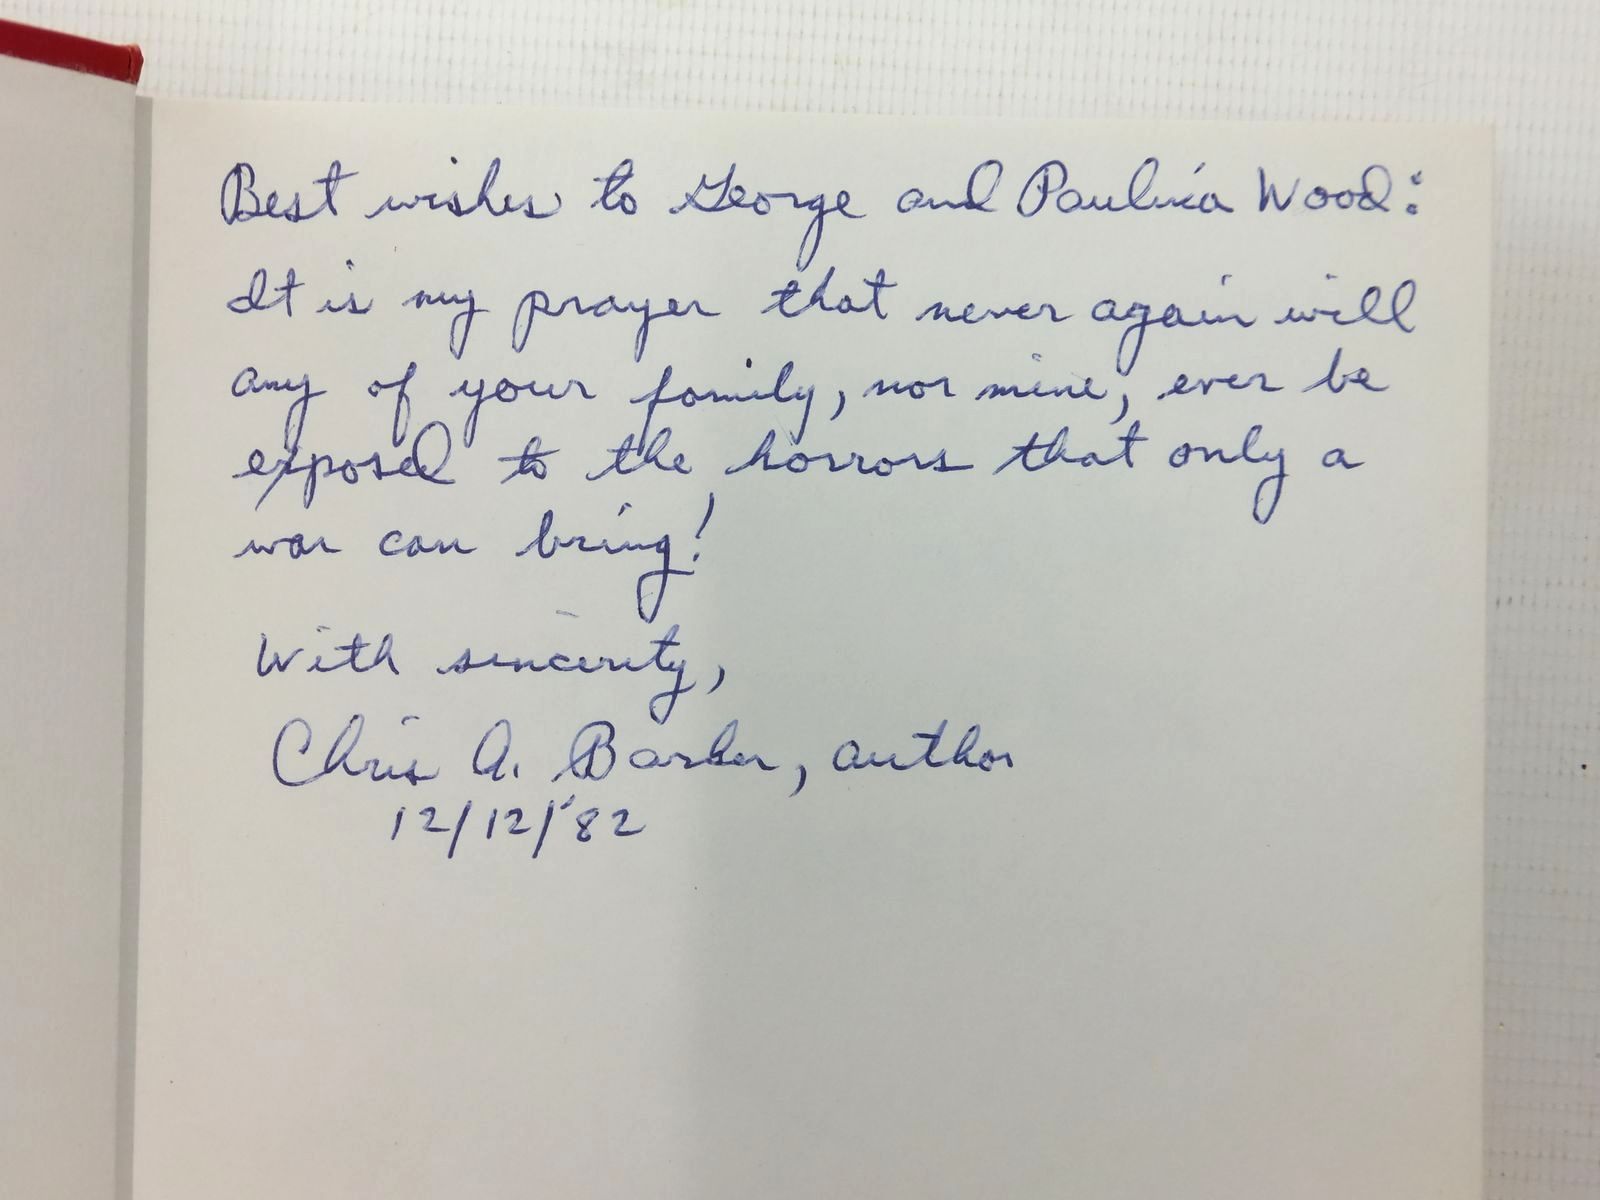 Best wishes to George and Paulina Wood:
It is my prayer that never again will
any of your family, nor mine, ever be
exposed to the horrors that only a
war can bring!
With sincerity,
Chris A. Barker, author
12/12/'82